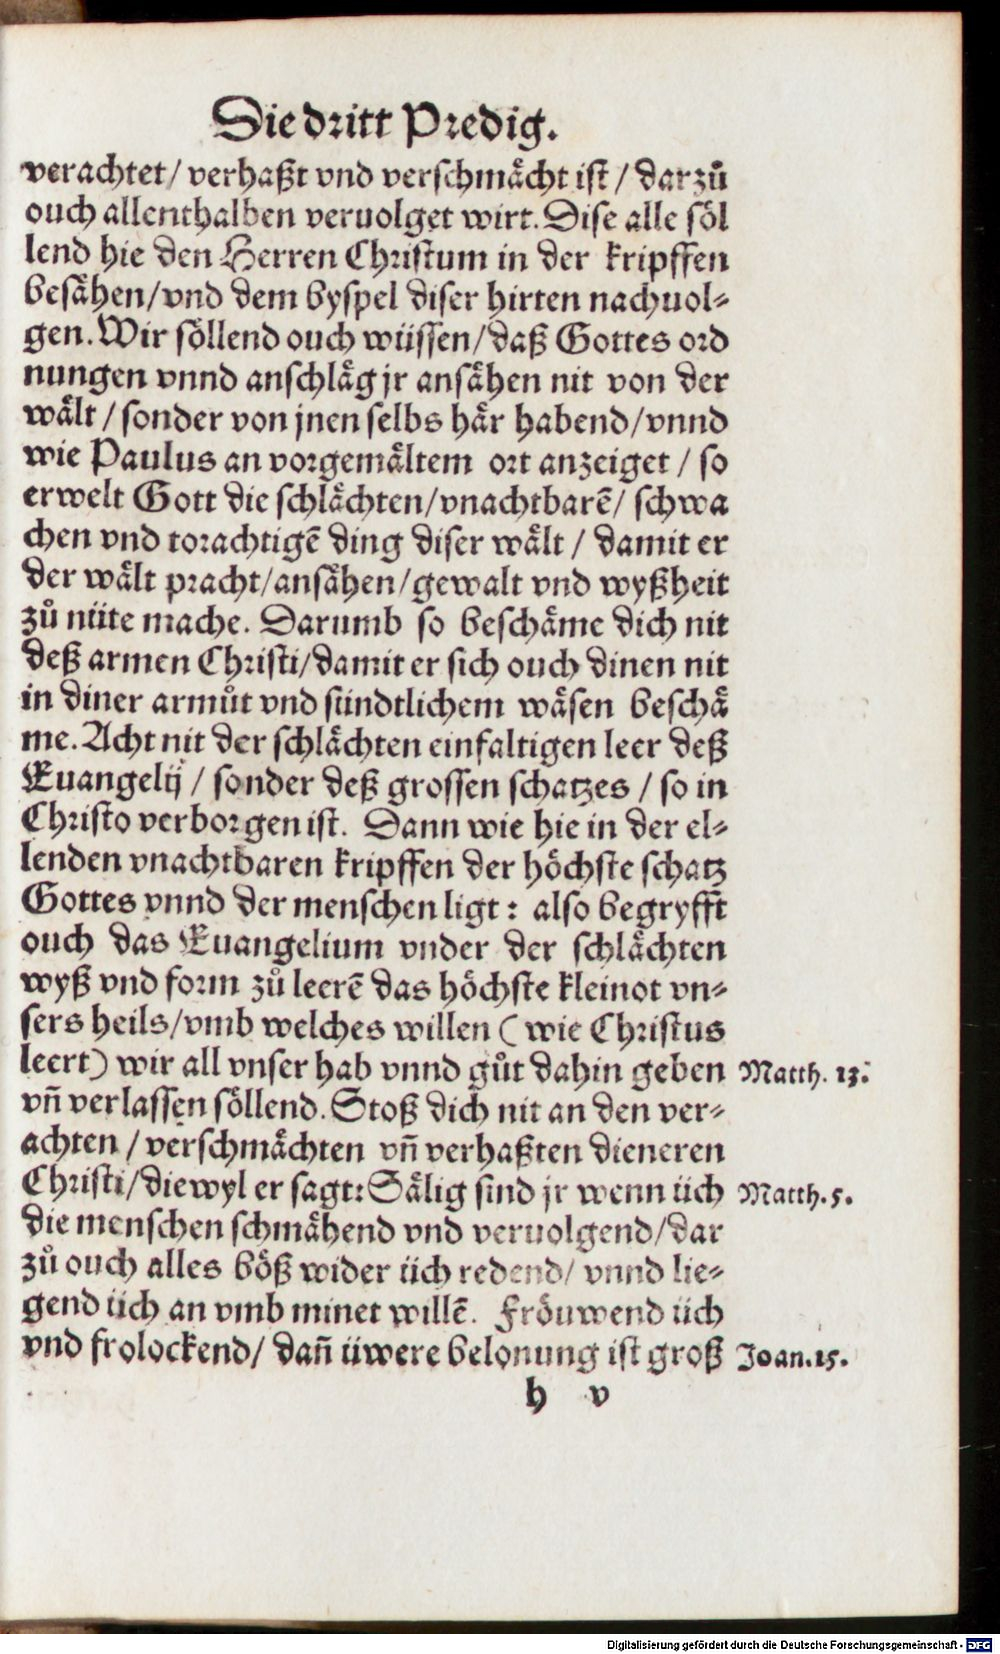 Die dritt Predig.
verachtet/ verhaßt vnd verschmächt ist / darzů
ouch allenthalben veruolget wirt. Dise alle söl
lend hie den Herren Christum in der kripffen
besähen/ vnd dem byspel diser hirten nachuol⸗
gen. Wir söllend ouch wüssen/ daß Gottes ord
nungen vnnd anschläg jr ansähen nit von der
wält / sonder von jnen selbs här habend/ vnnd
wie Paulus an vorgemältem ort anzeiget / so
erwelt Gott die schlächten/ vnachtbarē/ schwa
chen vnd torachtigē ding diser wält / damit er
der wält pracht/ ansähen/ gewalt vnd wyßheit
zů nüte mache. Darumb so beschäme dich nit
deß armen Christi/ damit er sich ouch dinen nit
in diner armůt vnd sündtlichem wäsen beschä
me. Acht nit der schlächten einfaltigen leer deß
Euangelij / sonder deß grossen schatzes / so in
Christo verborgen ist. Dann wie hie in der el⸗
lenden vnachtbaren kripffen der höchste schatz
Gottes vnnd der menschen ligt: also begryfft
ouch das Euangelium vnder der schlächten
wyß vnd form zů leerē das höchste kleinot vn⸗
sers heils/ vmb welches willen ( wie Christus
leert) wir all vnser hab vnnd gůt dahin geben Matth. 13.
vñ verlassen söllend. Stoß dich nit an den ver⸗
achten / verschmächten vñ verhaßten dieneren
Christi/ diewyl er sagt: Sälig sind jr wenn üch Matth. 5.
die menschen schmähend vnd veruolgend/ dar
zů ouch alles böß wider üch redend/ vnnd lie⸗
gend üch an vmb minet willē. Fröuwend üch
vnd frolockend/ dañ üwere belonung ist groß Joan. 15.
h v
Digitalisierung gefördert durch die Deutsche Forschungsgemeinschaft - DFG